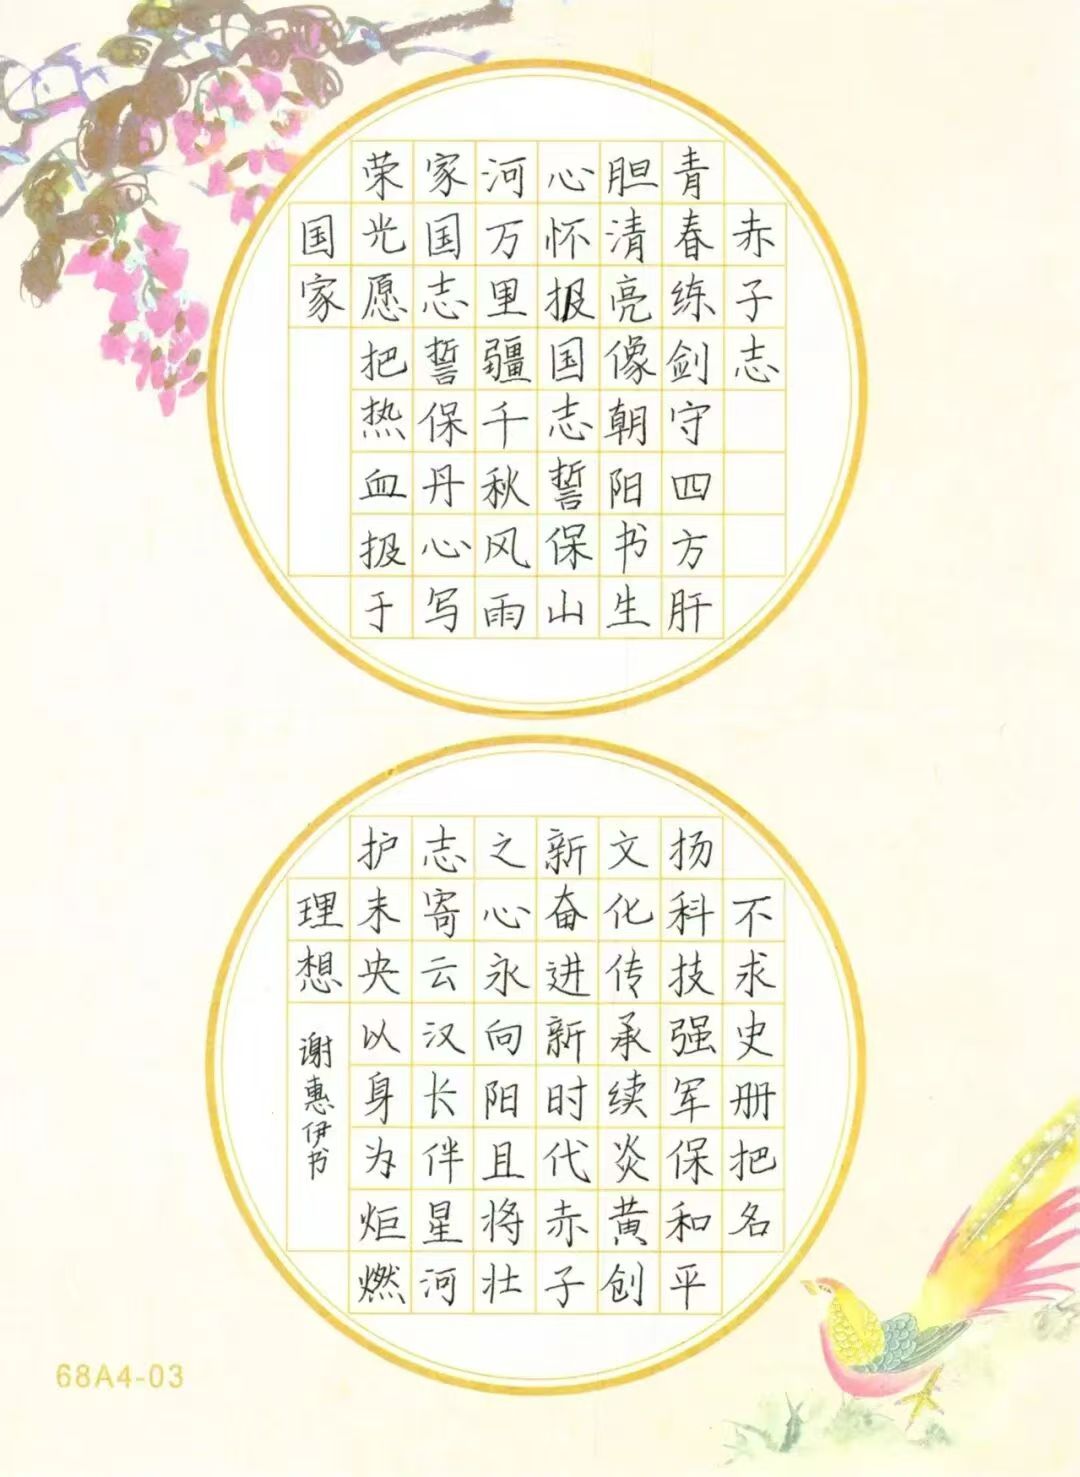 赤子志
青春练剑守四方肝
胆清亮像朝阳书生
心怀报国志誓保山
河万里疆千秋风雨
家国志誓保丹心写
荣光愿把热血报于
国家
不求史册把名
扬科技强军保和平
文化传承续炎黄创
新奋进新时代赤子
之心永向阳且将壮
志寄云汉长伴星河
护未央以身为炬燃
理想
谢惠伊书
68A4-03